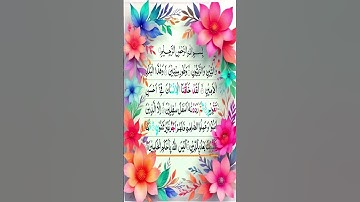 بِسْمِ اللهِ الرَّحْمٰنِ الرَّحِيْمِ
وَالتِّيْنِ وَالزَّيْتُوْنِ وَطُوْرِ سِيْنِيْنَ وَهٰذَا الْبَلَدِ
الْاَمِيْنِ لَقَدْ خَلَقْنَا الْاِنْسَانَ فِيْ اَحْسَنِ
تَقْوِيْمٍ ثُمَّ رَدَدْنٰهُ اَسْفَلَ سٰفِلِيْنَ اِلَّا الَّذِيْنَ
اٰمَنُوْا وَعَمِلُوا الصّٰلِحٰتِ فَلَهُمْ اَجْرٌ غَيْرُ فَمَا
بَعْدُ بِالدِّيْنِ اَلَيْسَ اللهُ بِاَحْكَمِ الْحٰكِمِيْنَ